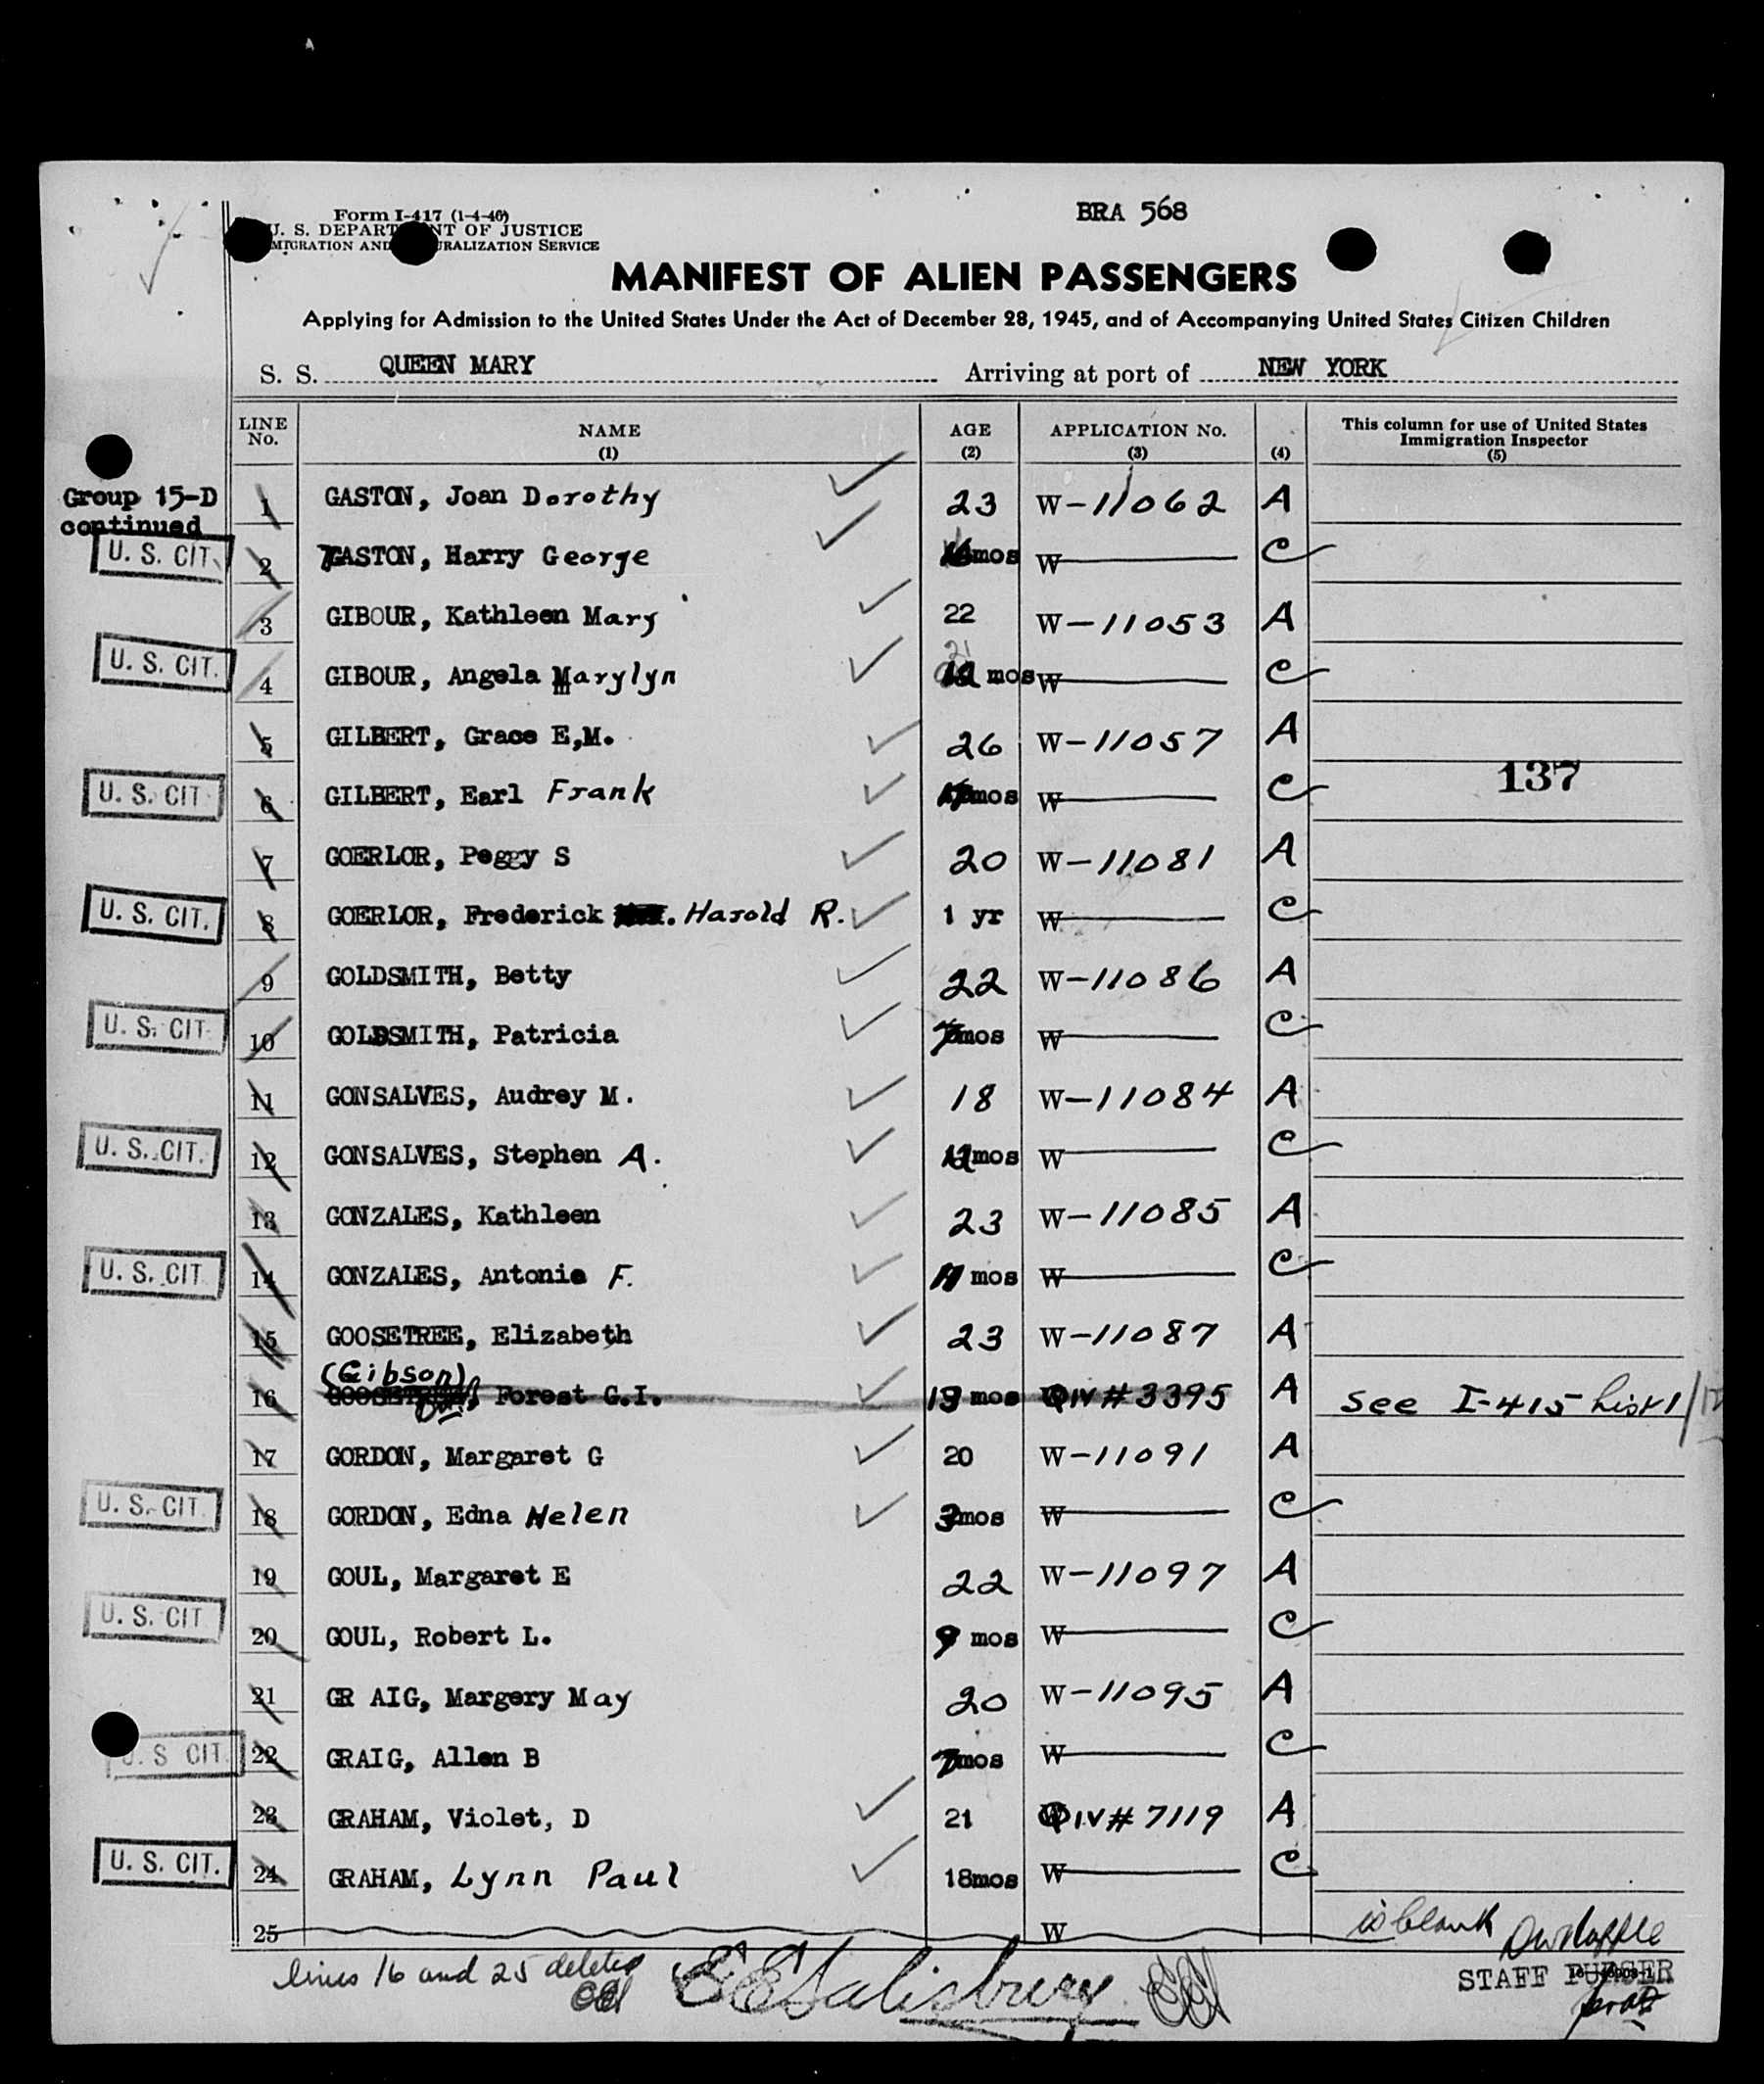 Form I-417 (1-4-46)
U. S. DEPARTMENT OF JUSTICE
IMMIGRATION AND NATURALIZATION SERVICE
BRA 568
MANIFEST OF ALIEN PASSENGERS
Applying for Admission to the United States Under the Act of December 28, 1945, and of Accompanying United States Citizen Children
S. S. QUEEN MARY Arriving at port of NEW YORK
LINE No. NAME (1) AGE (2) APPLICATION No. (3) (4) This column for use of United States Immigration Inspector (5)
Group 15-D continued
1 GASTON, Joan Dorothy 23 W-11062 A
U. S. CIT. 2 GASTON, Harry George mos W C
3 GIBOUR, Kathleen Mary 22 W-11053 A
U. S. CIT. 4 GIBOUR, Angela Marylyn 21 mos W C
5 GILBERT, Grace E,M. 26 W-11057 A
137
U. S. CIT 6 GILBERT, Earl Frank mos W C
7 GOERLOR, Peggy S 20 W-11081 A
U. S. CIT. 8 GOERLOR, Frederick Harold R. 1 yr W C
9 GOLDSMITH, Betty 22 W-11086 A
U. S. CIT 10 GOLDSMITH, Patricia mos W C
11 GONSALVES, Audrey M. 18 W-11084 A
U. S. CIT. 12 GONSALVES, Stephen A. mos W C
13 GONZALES, Kathleen 23 W-11085 A
U. S. CIT 14 GONZALES, Antonia F. 11 mos W C
15 GOOSETREE, Elizabeth 23 W-11087 A
(Gibson)
16 GOOSETREE, Forest G.I. mos QIV # 3395 A see I-415 List 1
17 GORDON, Margaret G 20 W-11091 A
U. S. CIT 18 GORDON, Edna Helen 3mos W C
19 GOUL, Margaret E 22 W-11097 A
U. S. CIT 20 GOUL, Robert L. 9 mos W C
21 GR AIG, Margery May 20 W-11095 A
U. S CIT. 22 GRAIG, Allen B 7mos W C
23 GRAHAM, Violet, D 21 QIV # 7119 A
U. S. CIT. 24 GRAHAM, Lynn Paul 18mos W C
25 W is blank
lines 16 and 25 deleted
EESalisbury
STAFF PURSER